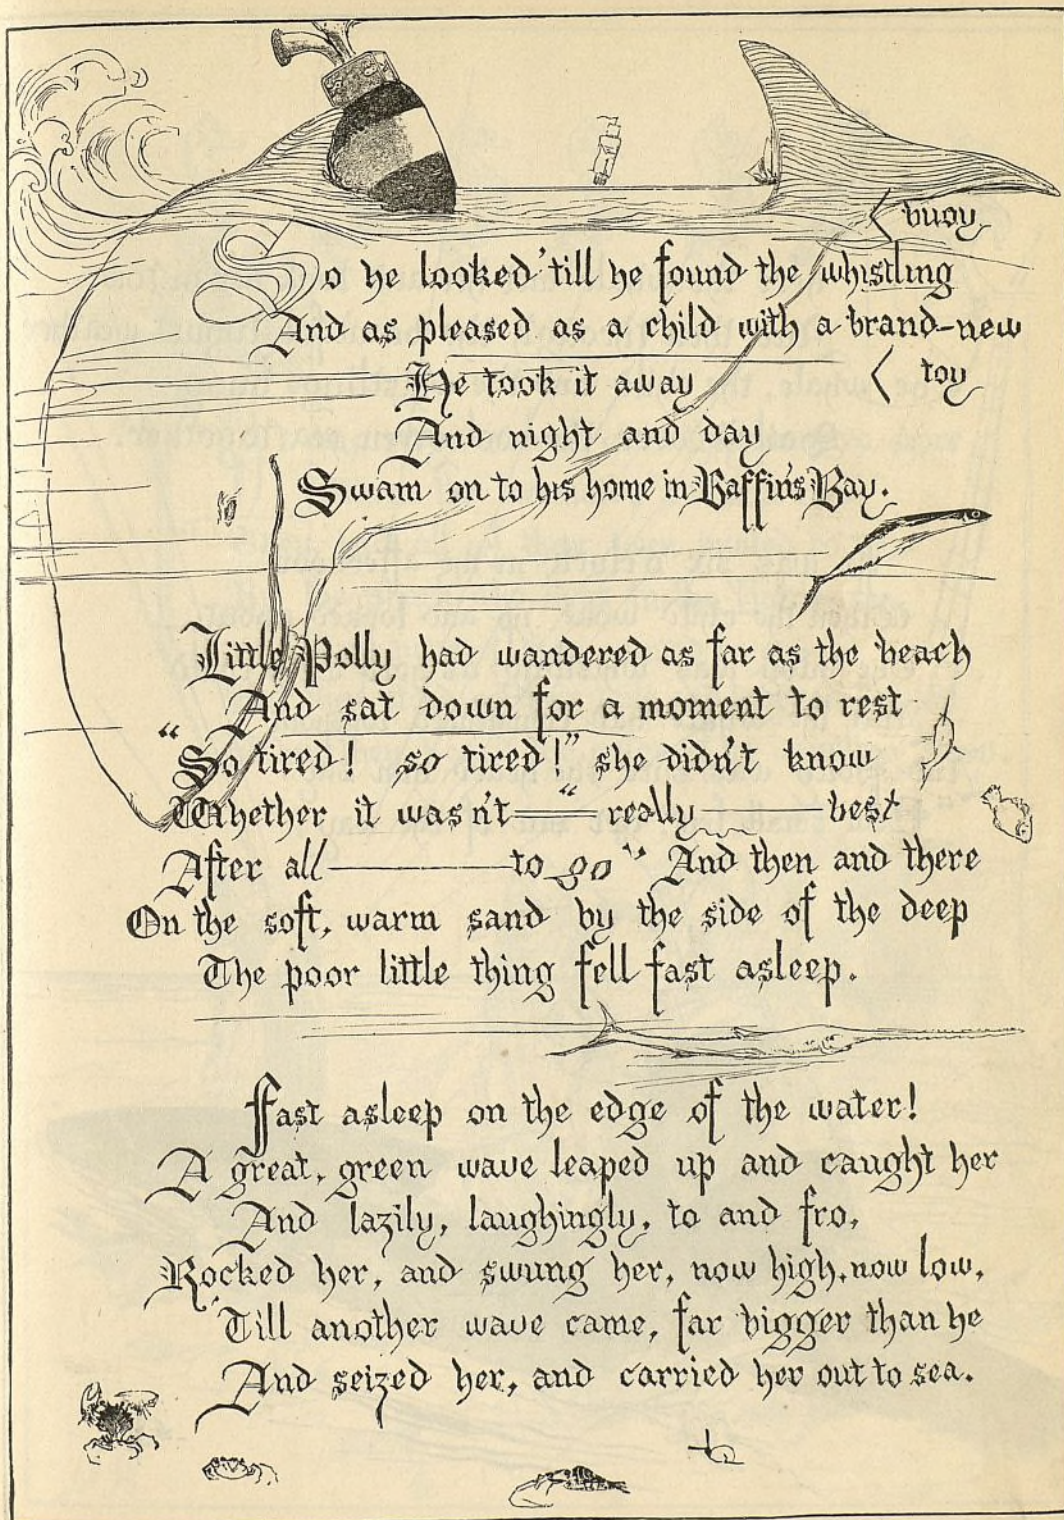 So he looked 'till he found the whistling
buoy
And as pleased as a child with a brand-new
toy
He took it away
And night and day
Swam on to his home in Baffin's Bay.
Little Polly had wandered as far as the beach
And sat down for a moment to rest
"So tired! so tired!" she didn't know
Whether it wasn't — "— really — best
After all — to go" And then and there
On the soft, warm sand by the side of the deep
The poor little thing fell fast asleep.
Fast asleep on the edge of the water!
A great, green wave leaped up and caught her
And lazily, laughingly, to and fro,
Rocked her, and swung her, now high, now low,
'Till another wave came, far bigger than he
And seized her, and carried her out to sea.